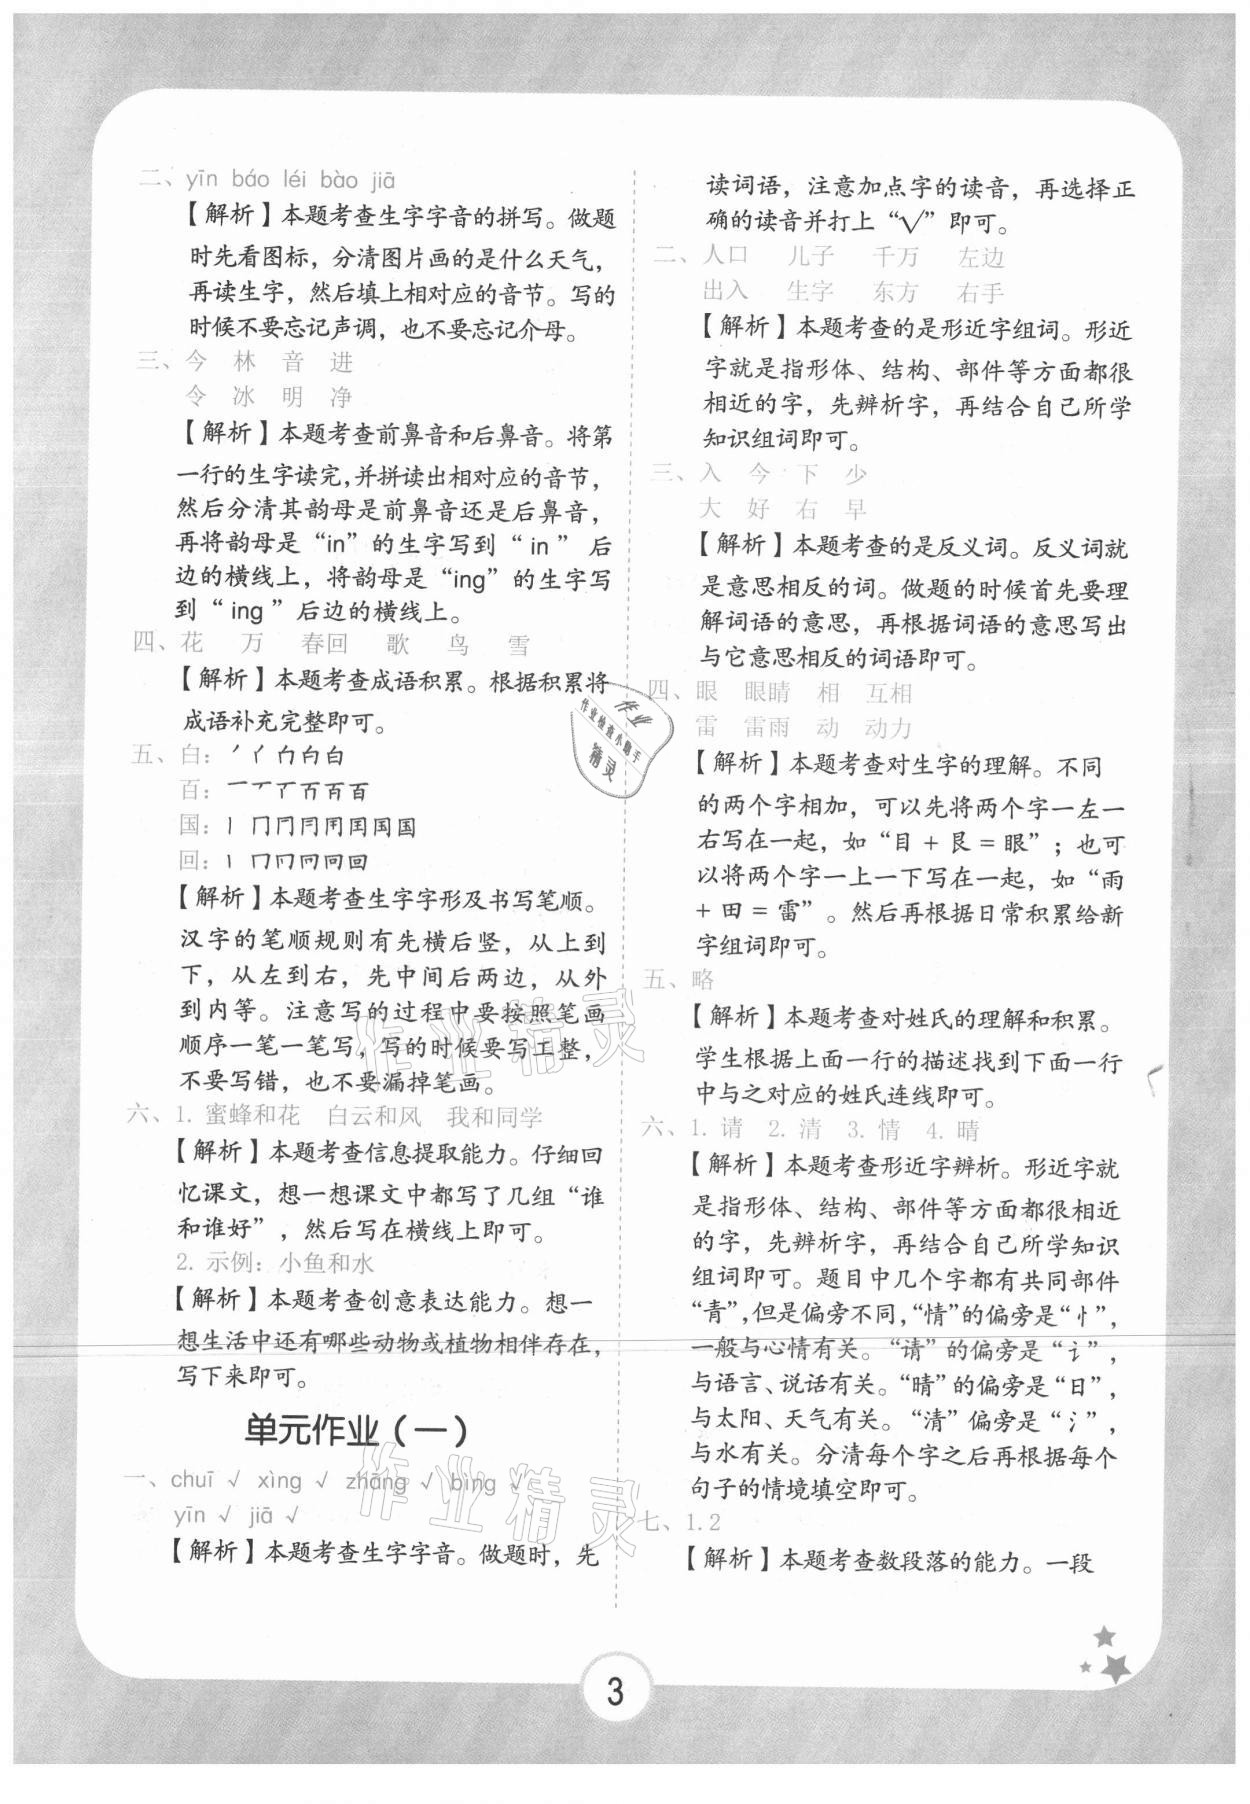 二、yīn báo léi bào jiā
【解析】本题考查生字字音的拼写。做题
时先看图标，分清图片画的是什么天气，
再读生字，然后填上相对应的音节。写的
时候不要忘记声调，也不要忘记介母。
三、今 林 音 进
令 冰 明 净
【解析】本题考查前鼻音和后鼻音。将第
一行的生字读完，并拼读出相对应的音节，
然后分清其韵母是前鼻音还是后鼻音，
再将韵母是“in”的生字写到“ in ” 后
边的横线上，将韵母是“ing”的生字写
到“ ing ”后边的横线上。
四、花 万 春回 歌 鸟 雪
【解析】本题考查成语积累。根据积累将
成语补充完整即可。
五、白：
百：
国：
回：
【解析】本题考查生字字形及书写笔顺。
汉字的笔顺规则有先横后竖，从上到
下，从左到右，先中间后两边，从外
到内等。注意写的过程中要按照笔画
顺序一笔一笔写，写的时候要写工整，
不要写错，也不要漏掉笔画。
六、1. 蜜蜂和花 白云和风 我和同学
【解析】本题考查信息提取能力。仔细回
忆课文，想一想课文中都写了几组“谁
和谁好”，然后写在横线上即可。
2. 示例：小鱼和水
【解析】本题考查创意表达能力。想一
想生活中还有哪些动物或植物相伴存在，
写下来即可。
单元作业（一）
一、chuī √ xìng √ zhāng √ bīng √
yīn √ jiā √
【解析】本题考查生字字音。做题时，先
读词语，注意加点字的读音，再选择正
确的读音并打上“√”即可。
二、人口 儿子 千万 左边
出入 生字 东方 右手
【解析】本题考查的是形近字组词。形近
字就是指形体、结构、部件等方面都很
相近的字，先辨析字，再结合自己所学
知识组词即可。
三、入 今 下 少
大 好 右 早
【解析】本题考查的是反义词。反义词就
是意思相反的词。做题的时候首先要理
解词语的意思，再根据词语的意思写出
与它意思相反的词语即可。
四、眼 眼睛 相 互相
雷 雷雨 动 动力
【解析】本题考查对生字的理解。不同
的两个字相加，可以先将两个字一左一
右写在一起，如“目 + 艮 = 眼”；也可
以将两个字一上一下写在一起，如“雨
+ 田 = 雷”。然后再根据日常积累给新
字组词即可。
五、略
【解析】本题考查对姓氏的理解和积累。
学生根据上面一行的描述找到下面一行
中与之对应的姓氏连线即可。
六、1. 请 2. 清 3. 情 4. 晴
【解析】本题考查形近字辨析。形近字就
是指形体、结构、部件等方面都很相近
的字，先辨析字，再结合自己所学知识
组词即可。题目中几个字都有共同部件
“青”，但是偏旁不同，“情”的偏旁是“忄”，
一般与心情有关。“请”的偏旁是“讠”，
与语言、说话有关。“晴”的偏旁是“日”，
与太阳、天气有关。“清”偏旁是“氵”，
与水有关。分清每个字之后再根据每个
句子的情境填空即可。
七、1. 2
【解析】本题考查数段落的能力。一段
作业
作业检查小助手
精灵
作业精灵
作业精灵
3